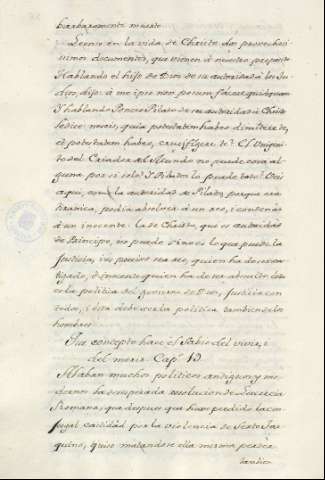 barbaramente muerte
Leense en la vida de Christo dos provechosi
simos documentos, que vienen à nuestro proposito
Hablando el hijo de Dios de su autoridad à los Ju
dios, dijo: à me ipso non possum facere quidquam
Y hablando Poncio Pilato de su autoridad à Christo
le dice nescis, quia potestatem habeo dimitere te,
et potestatem habeo, crucifigere te? El Unigeni
to del Criador del Mundo no puede cosa al
guna por si solo? Y Pilato lo puede todo? Veis
aqui, como la autoridad de Pilato, porque era
tiranica, podia absolver à un reo, i condenàr
à un inocente. la de Christo, que es autoridad
de Principe, no puede sino es lo que puede la
Justicia,
tigado, è inocente quien ha de ser absuelto esta
es la politica del govierno de Dios, justicia con
todos, i esta debe ser la politica tambien de los
hombres
Que concepto hace el Sabio del vivir, i
del morir Cap.º 10
Alaban muchos politicos antiguos y mo
dernos la desesperada resolucion de Lucrecia
Romana, que despues que huvo perdido la con
jugal castidad por la violencia de Sexto Tar
quino, quiso matandose ella misma perder
tambien